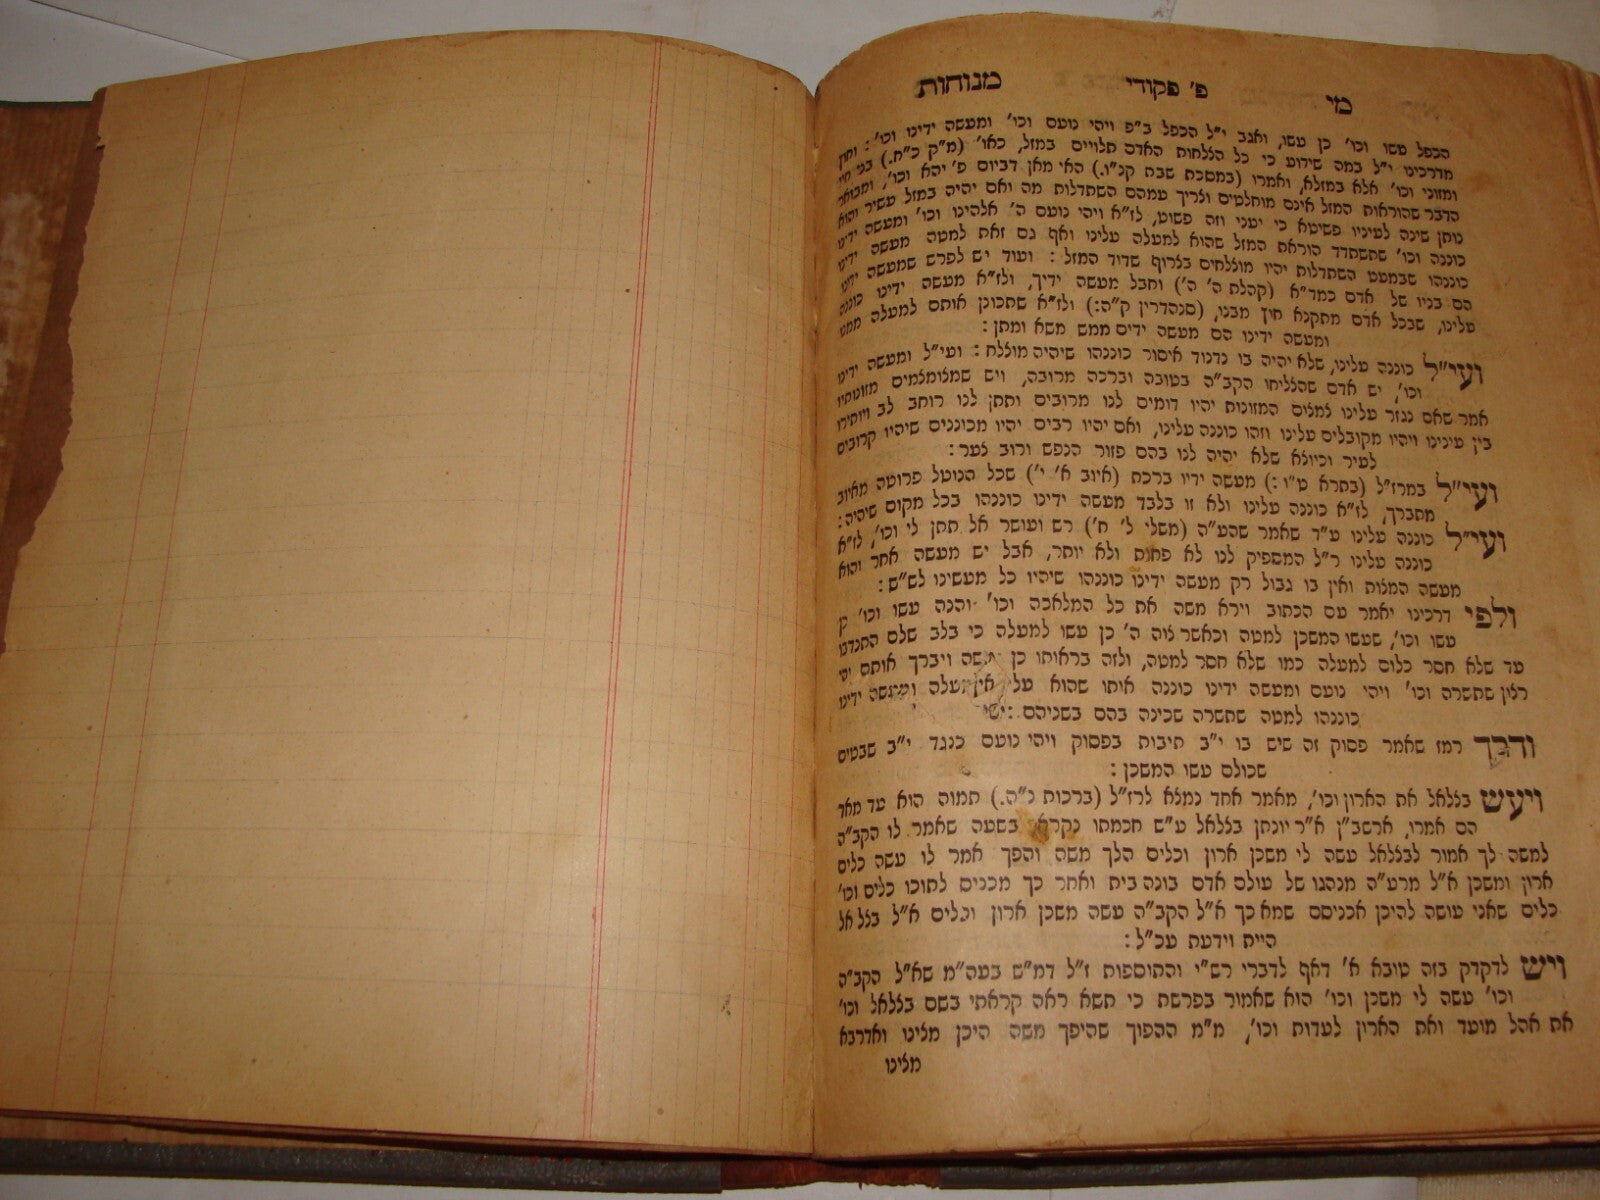 מי פ' פקודי מנוחות
הכפל עשו וכו' כן עשו, ואגב י"ל הכפל ב"פ ויהי נועם וכו' ומעשה ידינו וכו': ונתן
מדרכינו י"ל במה שידוע כי כל הצלחות האדם תלויים במזל, כאו' (מ"ק כ"ח.) בני חיי
ומזוני וכו' אלא במזלא, ואמרו (במסכת שבת קנ"ו.) האי מאן דביום פ' יהא וכו', ומבואר
הדבר שהוראות המזל אינם מוחלטים וצריך עמהם השתדלות מה ואם יהיה במזל עשיר והוא
נותן שינה לעיניו פשיטא כי יעני וזה פשוט, לז"א ויהי נועם ה' אלהינו וכו' ומעשה ידינו
כוננה וכו' שתשתדד הוראת המזל שהוא למעלה עלינו ואף גם זאת למטה מעשה ידינו
כוננהו שבמעט השתדלות יהיו מוצלחים בצרוף שדוד המזל: ועוד יש לפרש שמעשה ידינו
הם בניו של אדם כמד"א (קהלת ה' ה') וחבל מעשה ידיך, ולז"א מעשה ידינו כוננה
עלינו, שבכל אדם מתקנא חוץ מבנו, (סנהדרין ק"ה:) ולז"א שתכונן אותם למעלה ממנו
ומעשה ידינו הם מעשה ידים ממש משא ומתן:
ועי"ל כוננה עלינו, שלא יהיה בו נדנוד איסור כוננהו שיהיה מוצלח: ועי"ל ומעשה ידינו
וכו', יש אדם שהצליחו הקב"ה בטובה וברכה מרובה, ויש שמצומצמים מזונותיו
אמר שאם נגזר עלינו לצמצם המזונות יהיו דומים לנו מרובים ותתן לנו רוחב לב ויותירו
בין עינינו ויהיו מקובלים עלינו וזהו כוננה עלינו, ואם יהיו רבים יהיו מכוננים שיהיו קרובים
לעיר וכיוצא שלא יהיה לנו בהם פזור הנפש ורוב צער:
ועי"ל במרז"ל (בתרא ט"ו:) מעשה ידיו ברכת (איוב א' י') שכל הנוטל פרוטה מאיוב
מתברך, לז"א כוננה עלינו ולא זו בלבד מעשה ידינו כוננהו בכל מקום שיהיה:
ועי"ל כוננה עלינו ע"ד שאמר שהע"ה (משלי ל' ח') רש ועושר אל תתן לי וכו', לז"א
כוננה עלינו ר"ל המספיק לנו לא פחות ולא יותר, אבל יש מעשה אחר והוא
מעשה המצות ואין בו גבול רק מעשה ידינו כוננהו שיהיו כל מעשינו לש"ש:
ולפי דרכינו יאמר עם הכתוב וירא משה את כל המלאכה וכו' והנה עשו וכו' כן
עשו וכו', שעשו המשכן למטה וכאשר צוה ה' כן עשו למעלה כי בלב שלם התנדבו
עד שלא חסר כלום למעלה כמו שלא חסר למטה, ולזה בראותו כן משה ויברך אותם יהי
רצון שתשרה וכו' ויהי נועם ומעשה ידינו כוננה אותו שהוא עלינו למעלה ומעשה ידינו
כוננהו למטה שתשרה שכינה בהם בשניהם:
ודרך רמז שאמר פסוק זה שיש בו י"ב תיבות בפסוק ויהי נועם כנגד י"ב שבטים
שכולם עשו המשכן:
ויעש בצלאל את הארון וכו', מאמר אחד נמצא לרז"ל (ברכות נ"ה.) תמוה הוא עד מאד
הם אמרו, ארשב"ן א"ר יונתן בצלאל ע"ש חכמתו נקרא בשעה שאמר לו הקב"ה
למשה לך אמור לבצלאל עשה לי משכן ארון וכלים הלך משה והפך אמר לו עשה כלים
ארון ומשכן א"ל מרע"ה מנהגו של עולם אדם בונה בית ואחר כך מכנים לתוכו כלים וכו'
כלים שאני עושה להיכן אכניסם שמא כך א"ל הקב"ה עשה משכן ארון וכלים א"ל בצל אל
היית וידעת עכ"ל:
ויש לדקדק בזה טובא א' דאף לדברי רש"י והתוספות ז"ל דמ"ש בעה"מ שא"ל הקב"ה
וכו' עשה לי משכן וכו' הוא שאמור בפרשת כי תשא ראה קראתי בשם בצלאל וכו'
את אהל מועד ואת הארון לעדות וכו', מ"מ ההפוך שהיפך משה היכן מצינו ואדרבא
מצינו